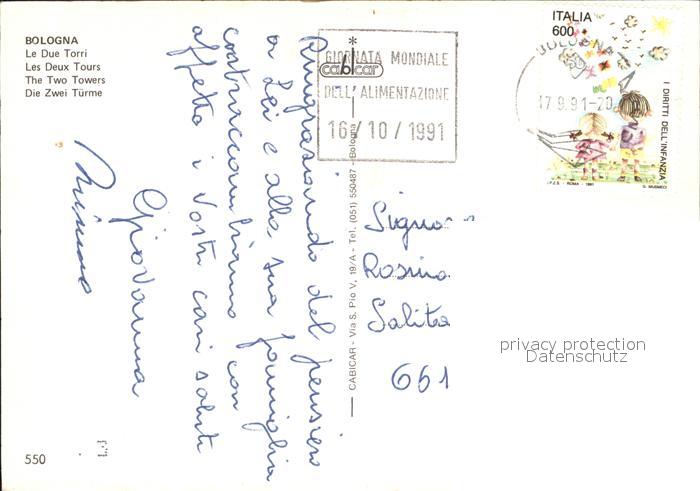 BOLOGNA
Le Due Torri
Les Deux Tours
The Two Towers
Die Zwei Türme
Ringraziando del pensiero
a Lei e alla sua famiglia
contraccambiamo con
affetto i Vostri cari saluti
Giovanna
550
CABICAR - Via S. Pio V, 19/A - Tel. (051) 550487 - Bologna
cabicar
GIORNATA MONDIALE
DELL'ALIMENTAZIONE
16/10/1991
ITALIA
600
I DIRITTI DELL'INFANZIA
I.P.Z.S. - ROMA - 1991
G. MUSMECI
BOLOGNA
17.9.91-20
Signora
Rosina
Salita
661
privacy protection
Datenschutz